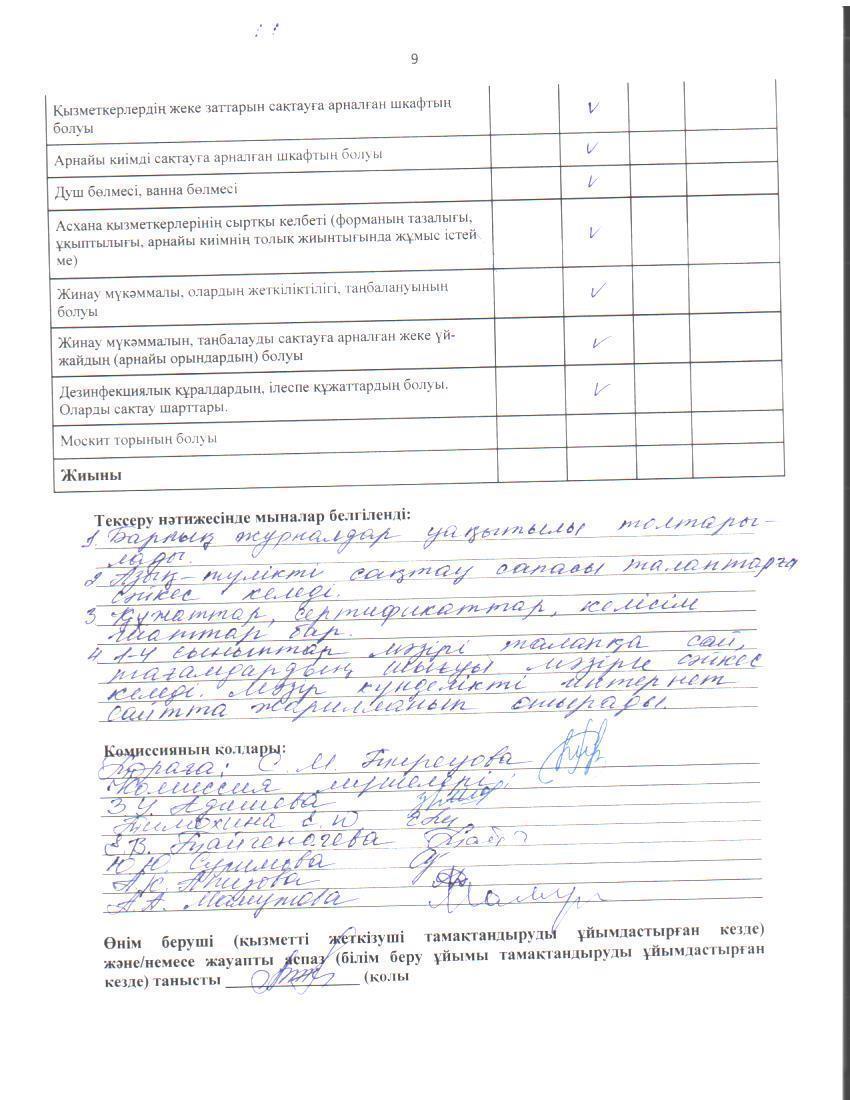 9
Қызметкерлердің жеке заттарын сақтауға арналған шкафтың
болуы
Арнайы киімді сақтауға арналған шкафтың болуы
Душ бөлмесі, ванна бөлмесі
Асхана қызметкерлерінің сыртқы келбеті (форманың тазалығы,
ұқыптылығы, арнайы киімнің толық жиынтығында жұмыс істей
ме)
Жинау мүкәммалы, олардың жеткіліктілігі, таңбалануының
болуы
Жинау мүкәммалын, таңбалауды сақтауға арналған жеке үй-
жайдың (арнайы орындардың) болуы
Дезинфекциялық құралдардың, ілеспе құжаттардың болуы.
Оларды сақтау шарттары.
Москит торының болуы
Жиыны
Тексеру нәтижесінде мыналар белгіленді:
1. Барлық журналдар уақытылы толтары-
лады.
2. Азық-түлікті сақтау сапасы талаптарға
сәйкес келеді.
3. Құжаттар, сертификаттар, келісім
шаттар бар.
4. 1-4 сыныптар мәзірі талапқа сай,
тағамдардың шығуы мәзірге сәйкес
келеді. Мәзір күнделікті интернет
сайтта жарилланып отырады.
Комиссияның қолдары:
Төраға: С. М.
Комиссия мүшелері:
З.У. Адишева
Тимохина Е. Ю
Е.В.
Ю.Ю. Суримова
А.К.
А.А. Мамутова
Өнім беруші (қызметті жеткізуші тамақтандыруды ұйымдастырған кезде)
және/немесе жауапты аспаз (білім беру ұйымы тамақтандыруды ұйымдастырған
кезде) танысты ________________ (қолы